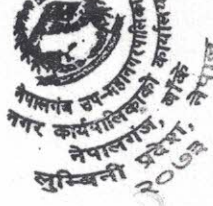 नेपालगंज उप-महानगरपालिका
नगर कार्यपालिकाको कार्यालय
नेपालगंज, बाँके
लुम्बिनी प्रदेश, नेपाल
२०७३